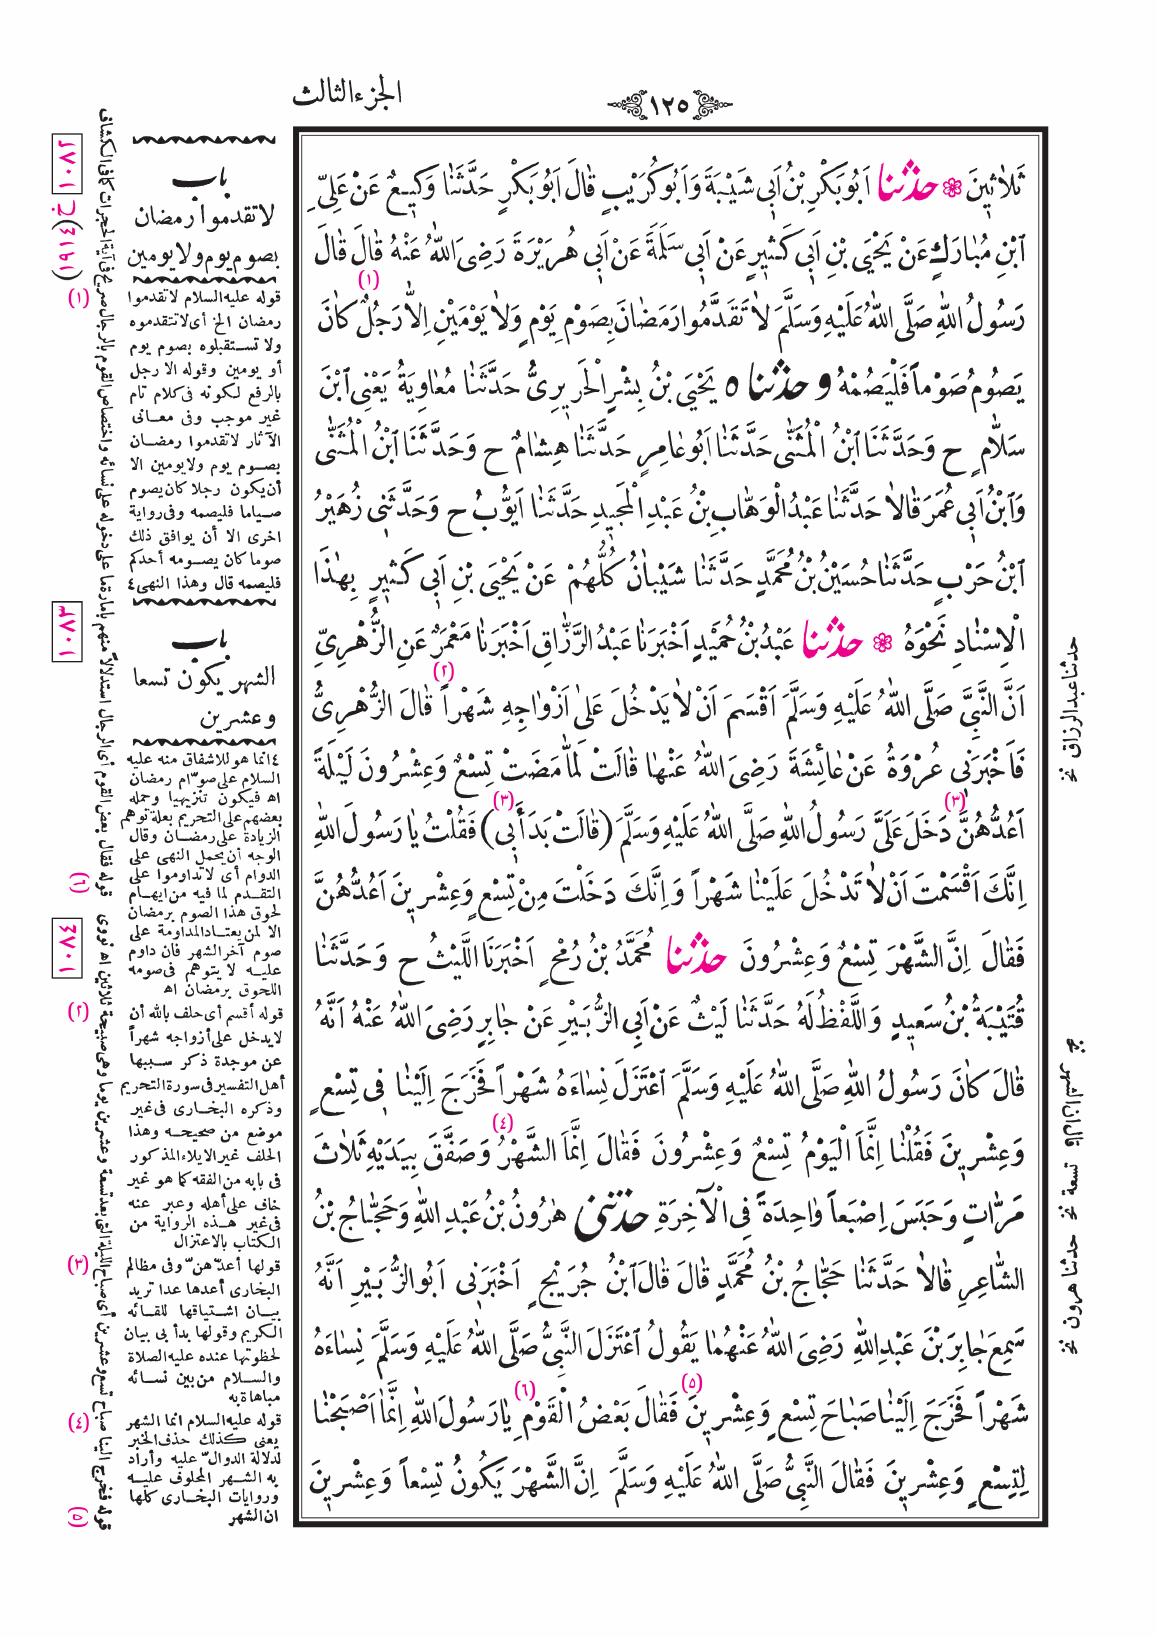 الجزء الثالث
١٢٥
ثَلَاثِينَ ❁ حدثنا اَبُو بَكْرِ بْنُ اَبِي شَيْبَةَ وَاَبُو كُرَيْبٍ قَالَ اَبُو بَكْرٍ حَدَّثَنَا وَكِيعٌ عَنْ عَلِيِّ
ابْنِ مُبَارَكٍ عَنْ يَحْيَى بْنِ اَبِي كَثِيرٍ عَنْ اَبِي سَلَمَةَ عَنْ اَبِي هُرَيْرَةَ رَضِيَ اللّٰهُ عَنْهُ قَالَ قَالَ
رَسُولُ اللّٰهِ صَلَّى اللّٰهُ عَلَيْهِ وَسَلَّمَ (١) لَا تَقَدَّمُوا رَمَضَانَ بِصَوْمِ يَوْمٍ وَلَا يَوْمَيْنِ اِلَّا رَجُلٌ كَانَ
يَصُومُ صَوْماً فَلْيَصُمْهُ و حدثنا ه يَحْيَى بْنُ بِشْرٍ الْحَرِيرِيُّ حَدَّثَنَا مُعَاوِيَةُ يَعْنِي ابْنَ
سَلَّامٍ ح وَحَدَّثَنَا ابْنُ الْمُثَنَّى حَدَّثَنَا اَبُو عَامِرٍ حَدَّثَنَا هِشَامٌ ح وَحَدَّثَنَا ابْنُ الْمُثَنَّى
وَابْنُ اَبِي عُمَرَ قَالَا حَدَّثَنَا عَبْدُ الْوَهَّابِ بْنُ عَبْدِ الْمَجِيدِ حَدَّثَنَا اَيُّوبُ ح وَحَدَّثَنِي زُهَيْرُ
ابْنُ حَرْبٍ حَدَّثَنَا حُسَيْنُ بْنُ مُحَمَّدٍ حَدَّثَنَا شَيْبَانُ كُلُّهُمْ عَنْ يَحْيَى بْنِ اَبِي كَثِيرٍ بِهٰذَا
الْاِسْنَادِ نَحْوَهُ ❁ حدثنا عَبْدُ بْنُ حُمَيْدٍ اَخْبَرَنَا عَبْدُ الرَّزَّاقِ اَخْبَرَنَا مَعْمَرٌ عَنِ الزُّهْرِيِّ
اَنَّ النَّبِيَّ صَلَّى اللّٰهُ عَلَيْهِ وَسَلَّمَ (٢) اَقْسَمَ اَنْ لَا يَدْخُلَ عَلَى اَزْوَاجِهِ شَهْراً قَالَ الزُّهْرِيُّ
فَاَخْبَرَنِي عُرْوَةُ عَنْ عَائِشَةَ رَضِيَ اللّٰهُ عَنْهَا قَالَتْ لَمَّا مَضَتْ تِسْعٌ وَعِشْرُونَ لَيْلَةً
(٣) اَعُدُّهُنَّ دَخَلَ عَلَيَّ رَسُولُ اللّٰهِ صَلَّى اللّٰهُ عَلَيْهِ وَسَلَّمَ (٣) (قَالَتْ بَدَأَ بِي) فَقُلْتُ يَا رَسُولَ اللّٰهِ
اِنَّكَ اَقْسَمْتَ اَنْ لَا تَدْخُلَ عَلَيْنَا شَهْراً وَاِنَّكَ دَخَلْتَ مِنْ تِسْعٍ وَعِشْرِينَ اَعُدُّهُنَّ
فَقَالَ اِنَّ الشَّهْرَ تِسْعٌ وَعِشْرُونَ حدثنا مُحَمَّدُ بْنُ رُمْحٍ اَخْبَرَنَا اللَّيْثُ ح وَحَدَّثَنَا
قُتَيْبَةُ بْنُ سَعِيدٍ وَاللَّفْظُ لَهُ حَدَّثَنَا لَيْثٌ عَنْ اَبِي الزُّبَيْرِ عَنْ جَابِرٍ رَضِيَ اللّٰهُ عَنْهُ اَنَّهُ
قَالَ كَانَ رَسُولُ اللّٰهِ صَلَّى اللّٰهُ عَلَيْهِ وَسَلَّمَ اعْتَزَلَ نِسَاءَهُ شَهْراً فَخَرَجَ اِلَيْنَا فِي تِسْعٍ
وَعِشْرِينَ فَقُلْنَا اِنَّمَا الْيَوْمُ تِسْعٌ وَعِشْرُونَ فَقَالَ (٤) اِنَّمَا الشَّهْرُ وَصَفَّقَ بِيَدَيْهِ ثَلَاثَ
مَرَّاتٍ وَحَبَسَ اِصْبَعاً وَاحِدَةً فِي الْآخِرَةِ حدثنى هٰرُونُ بْنُ عَبْدِ اللّٰهِ وَحَجَّاجُ بْنُ
الشَّاعِرِ قَالَا حَدَّثَنَا حَجَّاجُ بْنُ مُحَمَّدٍ قَالَ قَالَ ابْنُ جُرَيْجٍ اَخْبَرَنِي اَبُو الزُّبَيْرِ اَنَّهُ
سَمِعَ جَابِرَ بْنَ عَبْدِ اللّٰهِ رَضِيَ اللّٰهُ عَنْهُمَا يَقُولُ اعْتَزَلَ النَّبِيُّ صَلَّى اللّٰهُ عَلَيْهِ وَسَلَّمَ نِسَاءَهُ
شَهْراً فَخَرَجَ اِلَيْنَا صَبَاحَ تِسْعٍ وَعِشْرِينَ (٥) فَقَالَ بَعْضُ الْقَوْمِ (٦) يَا رَسُولَ اللّٰهِ اِنَّمَا اَصْبَحْنَا
لِتِسْعٍ وَعِشْرِينَ فَقَالَ النَّبِيُّ صَلَّى اللّٰهُ عَلَيْهِ وَسَلَّمَ اِنَّ الشَّهْرَ يَكُونُ تِسْعاً وَعِشْرِينَ
حدثنا عبد الرزاق نخ
قال ان الشهر نخ
تسعة نخ
حدثنا هرون نخ
باب
لا تقدموا رمضان
بصوم يوم ولا يومين
قوله عليه السلام لا تقدموا
رمضان الخ أى لا تتقدموه
ولا تستقبلوه بصوم يوم
أو يومين وقوله الا رجل
بالرفع لكونه فى كلام تام
غير موجب وفى معانى
الآثار لا تقدموا رمضان
بصوم يوم ولا يومين الا
أن يكون رجلا كان يصوم
صياما فليصمه وفى رواية
اخرى الا أن يوافق ذلك
صوما كان يصومه أحدكم
فليصمه قال وهذا النهى ٤
باب
الشهر يكون تسعا
وعشرين
٤ انما هو للاشفاق منه عليه
السلام على صوّام رمضان
اه فيكون تنزيهيا وحمله
بعضهم على التحريم بعلة توهم
الزيادة على رمضان وقال
الوجه أن يحمل النهى على
الدوام أى لا تداوموا على
التقدم لما فيه من ايهام
لحوق هذا الصوم برمضان
الا لمن يعتاد المداومة على
صوم آخر الشهر فان داوم
عليه لا يتوهم فى صومه
اللحوق برمضان اه
قوله أقسم أى حلف بالله أن
لا يدخل على أزواجه شهراً
عن موجدة ذكر سببها
أهل التفسير فى سورة التحريم
وذكره البخارى فى غير
موضع من صحيحه وهذا
الحلف غير الايلاء المذكور
فى بابه من الفقه كما هو غير
خاف على أهله وعبر عنه
فى غير هذه الرواية من
الكتاب بالاعتزال
قولها أعدّهنّ وفى مظالم
البخارى أعدها عدا تريد
بيان اشتياقها للقائه
الكريم وقولها بدأ بى بيان
لحظوتها عنده عليه الصلاة
والسلام من بين نسائه
مباهاة به
قوله عليه السلام انما الشهر
يعنى كذلك حذف الخبر
لدلالة الدوالّ عليه وأراد
به الشهر المحلوف عليه
وروايات البخارى كلها
ان الشهر
قوله فخرج الينا صباح تسع وعشرين أى صباح الليلة التى بعد تسعة وعشرين يوما وهى صبيحة ثلاثين اه نووى
قوله فقال بعض القوم أى الرجال استدلالاً منهم بامارة ما على دخوله على نسائه واختصاص القوم بالرجال صريح فى آية الحجرات كما فى الكشاف
١٠٧٢
(٤١٩١) ج
(١)
١٠٧٣
(٦)
١٠٧٤
(٢)
(٣)
(٤)
(٥)